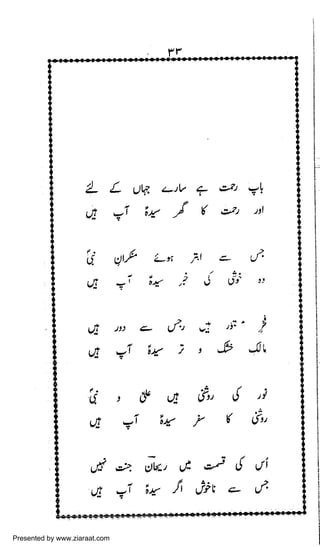 ۳۳
باپ رحمت ہے سارے جہاں کے لئے
اور رحمت کا گھر سیدہؑ آپ ہیں
جس سے ابتر ہوئے منکرانِ نبیؐ
وہ خوشی کی خبر سیدہؑ آپ ہیں
ہیں رجس سے دور ہیں
مالک خشک و تر سیدہؑ آپ ہیں
نور کی روشنی ہیں علیؑ و نبیؐ
روشنی کا سفر سیدہؑ آپ ہیں
اُس کی قسمت میں ریحانؔ جنت نہیں
جس سے ناخوش اگر سیدہؑ آپ ہیں
Presented by www.ziaraat.com